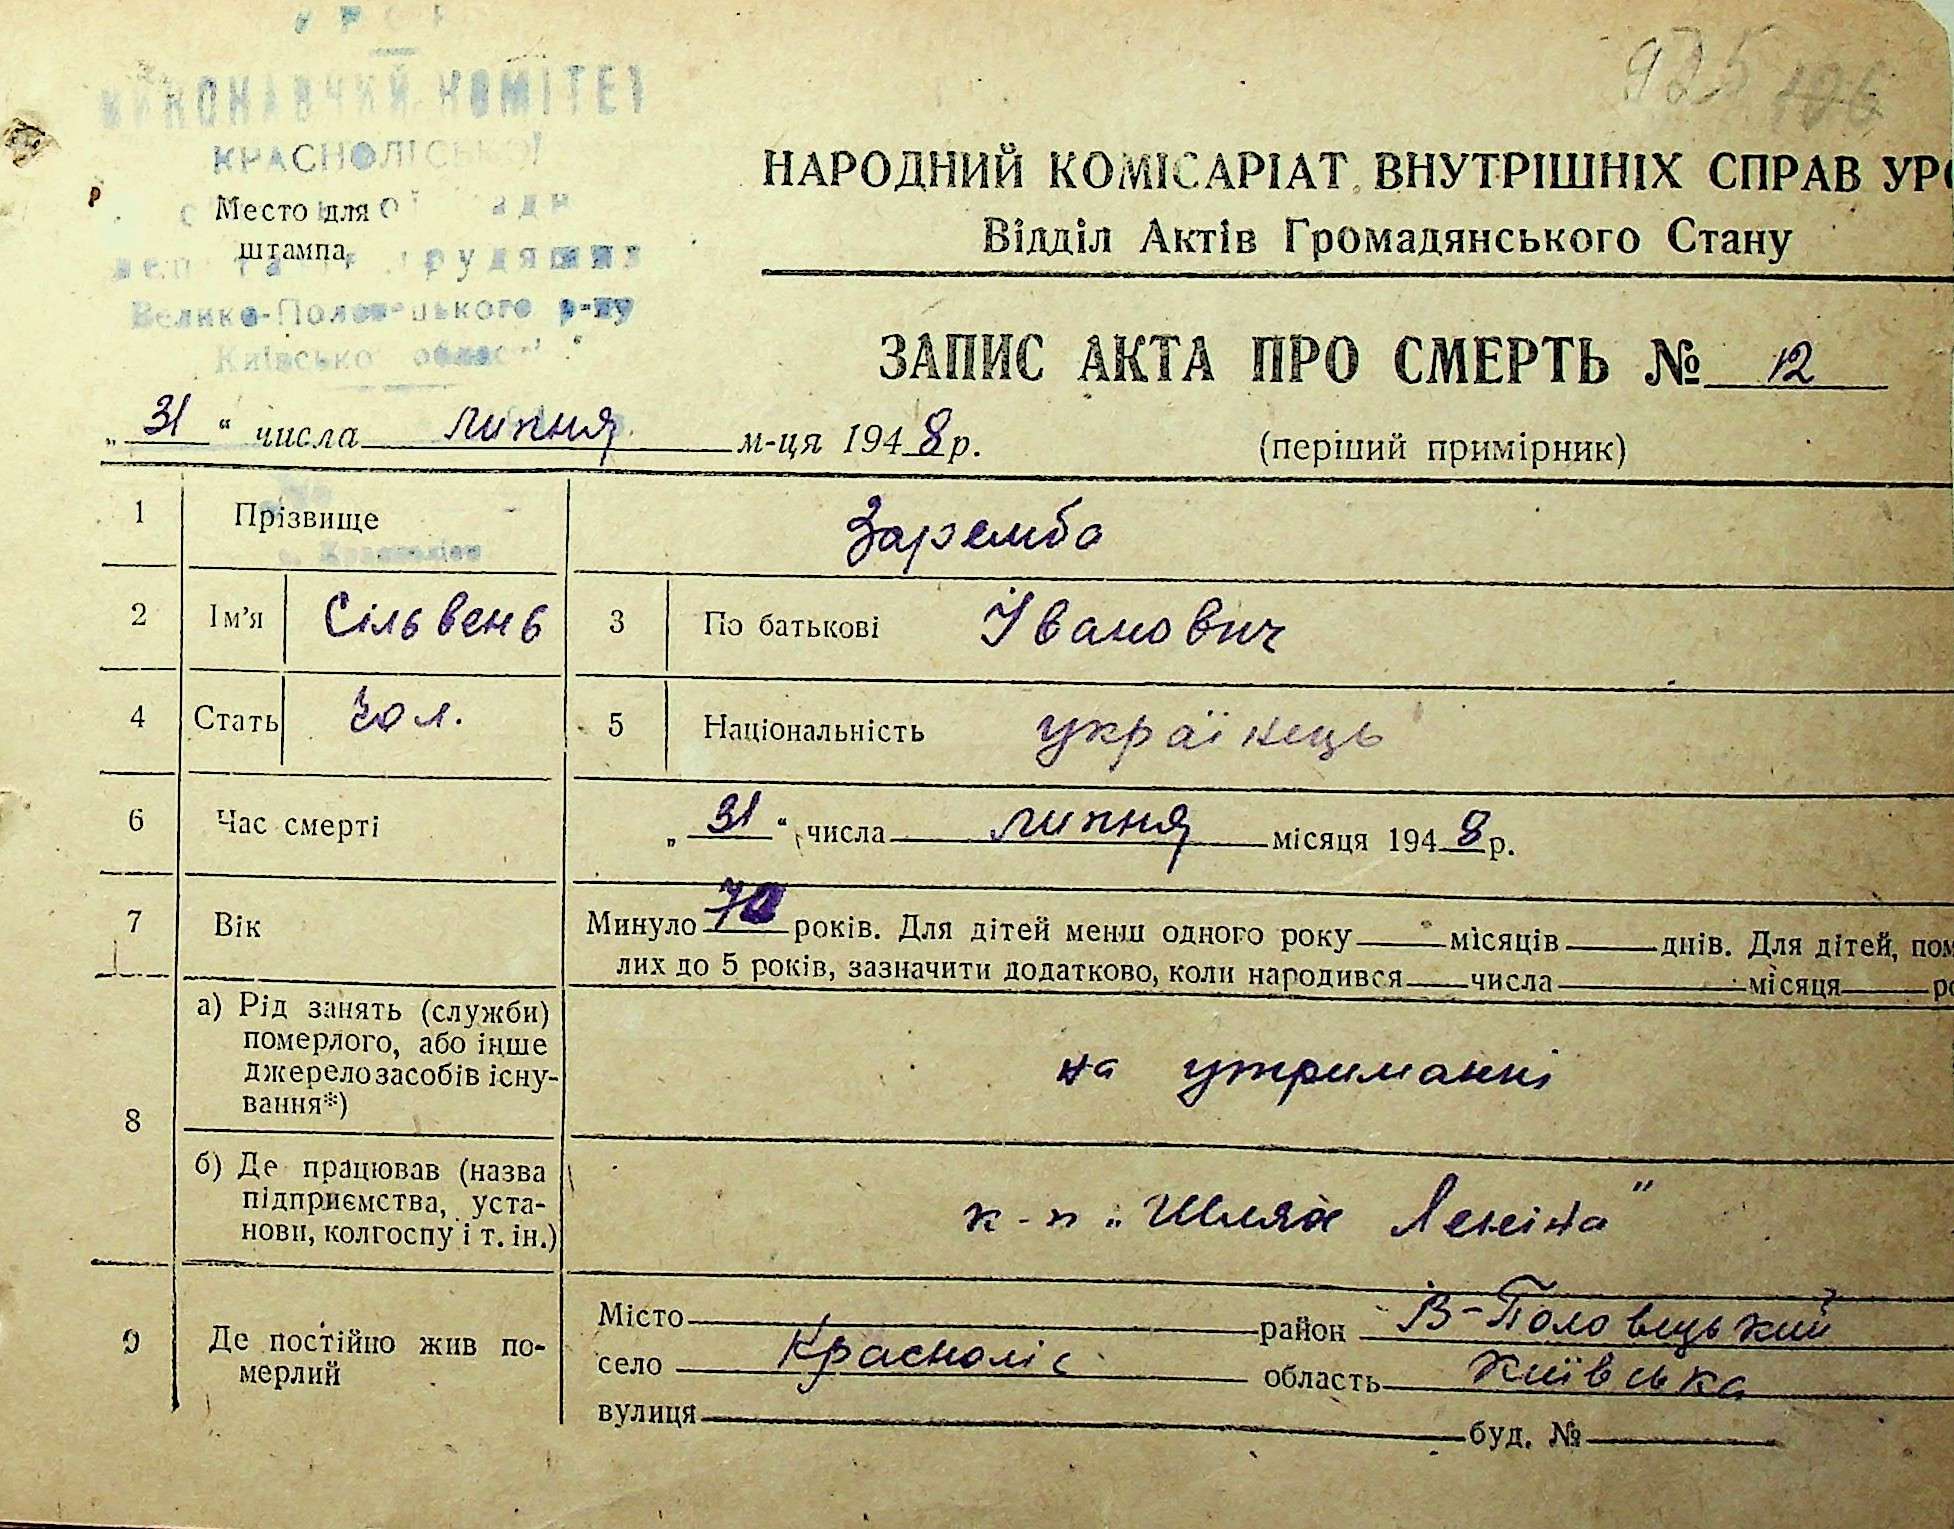 925 106
ВИКОНАВЧИЙ КОМІТЕТ
КРАСНОЛІСЬКОЇ
Место для
штампа
трудящих
Велико-Половецького р-ну
Київської області
НАРОДНИЙ КОМІСАРІАТ ВНУТРІШНІХ СПРАВ УРС
Відділ Актів Громадянського Стану
ЗАПИС АКТА ПРО СМЕРТЬ № 12
„31“ числа липня м-ця 1948 р.
(перший примірник)
1 Прізвище Заремба
2 Ім’я Сільвень 3 По батькові Іванович
4 Стать чол. 5 Національність українець
6 Час смерті „31“ числа липня місяця 1948 р.
7 Вік Минуло 70 років. Для дітей менш одного року місяців днів. Для дітей, пом
лих до 5 років, зазначити додатково, коли народився числа місяця ро
8 а) Рід занять (служби)
померлого, або інше
джерело засобів існу-
вання*)
на утриманні
б) Де працював (назва
підприємства, уста-
нови, колгоспу і т. ін.)
к-п „Шлях Леніна“
9 Де постійно жив по-
мерлий
Місто район В-Половецький
село Красноліс область Київська
вулиця буд. №